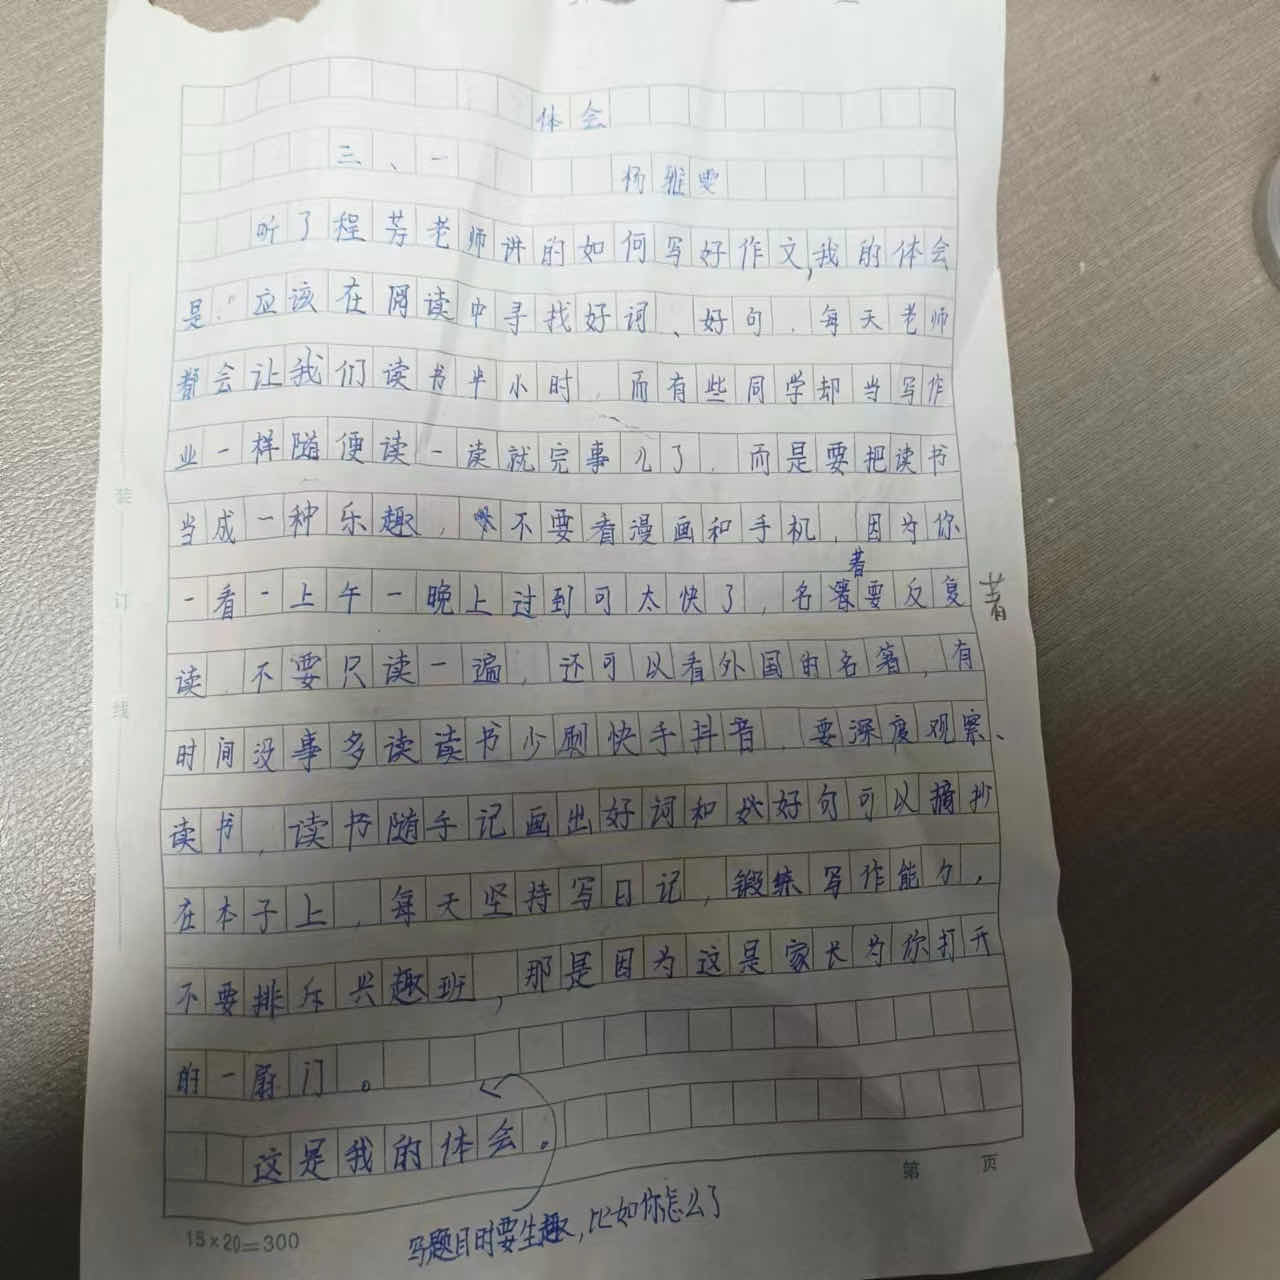 体会
三、一 杨雅雯
听了程芳老师讲的如何写好作文,我的体会
是:应该在阅读中寻找好词、好句.每天老师
都会让我们读书半小时.而有些同学却当写作
业一样随便读一读就完事儿了.而是要把读书
当成一种乐趣,不要看漫画和手机,因为你
一看一上午一晚上过到可太快了,名著要反复
著
读.不要只读一遍,还可以看外国的名著,有
时间没事多读读书少刷快手抖音.要深度观察、
读书,读书随手记画出好词和好句可以摘抄
在本子上,每天坚持写日记,锻练写作能力,
不要排斥兴趣班,那是因为这是家长为你打开
的一扇门。
这是我的体会。
写题目时要生趣,比如你怎么了
装
订
线
第 页
15×20=300